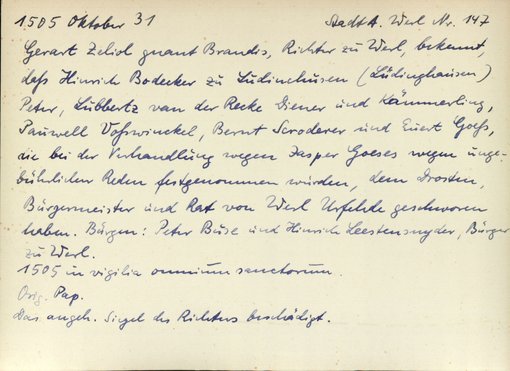 1505 Oktober 31 Stadt A. Werl Nr. 147
Gerart Zeliol gnant Brandis, Richter zu Werl, bekennt,
daß Hinrich Bodecker zu Ludinchusen (Lüdinghausen)
Peter, Lubbertz van der Recke Diener und Kämmerling,
Pauwell Voßwinckel, Bernt Scroderer und Evert Goeß,
die bei der Verhandlung wegen Jasper Goeses wegen unge-
bührlicher Reden festgenommen wurden, dem Drosten,
Bürgermeister und Rat von Werl Urfehde geschworen
haben. Bürgen: Peter Buse und Hinrich Leestensnyder, Bürger
zu Werl.
1505 in vigilia omnium sanctorum.
Orig. Pap.
Das angeh. Siegel des Richters beschädigt.